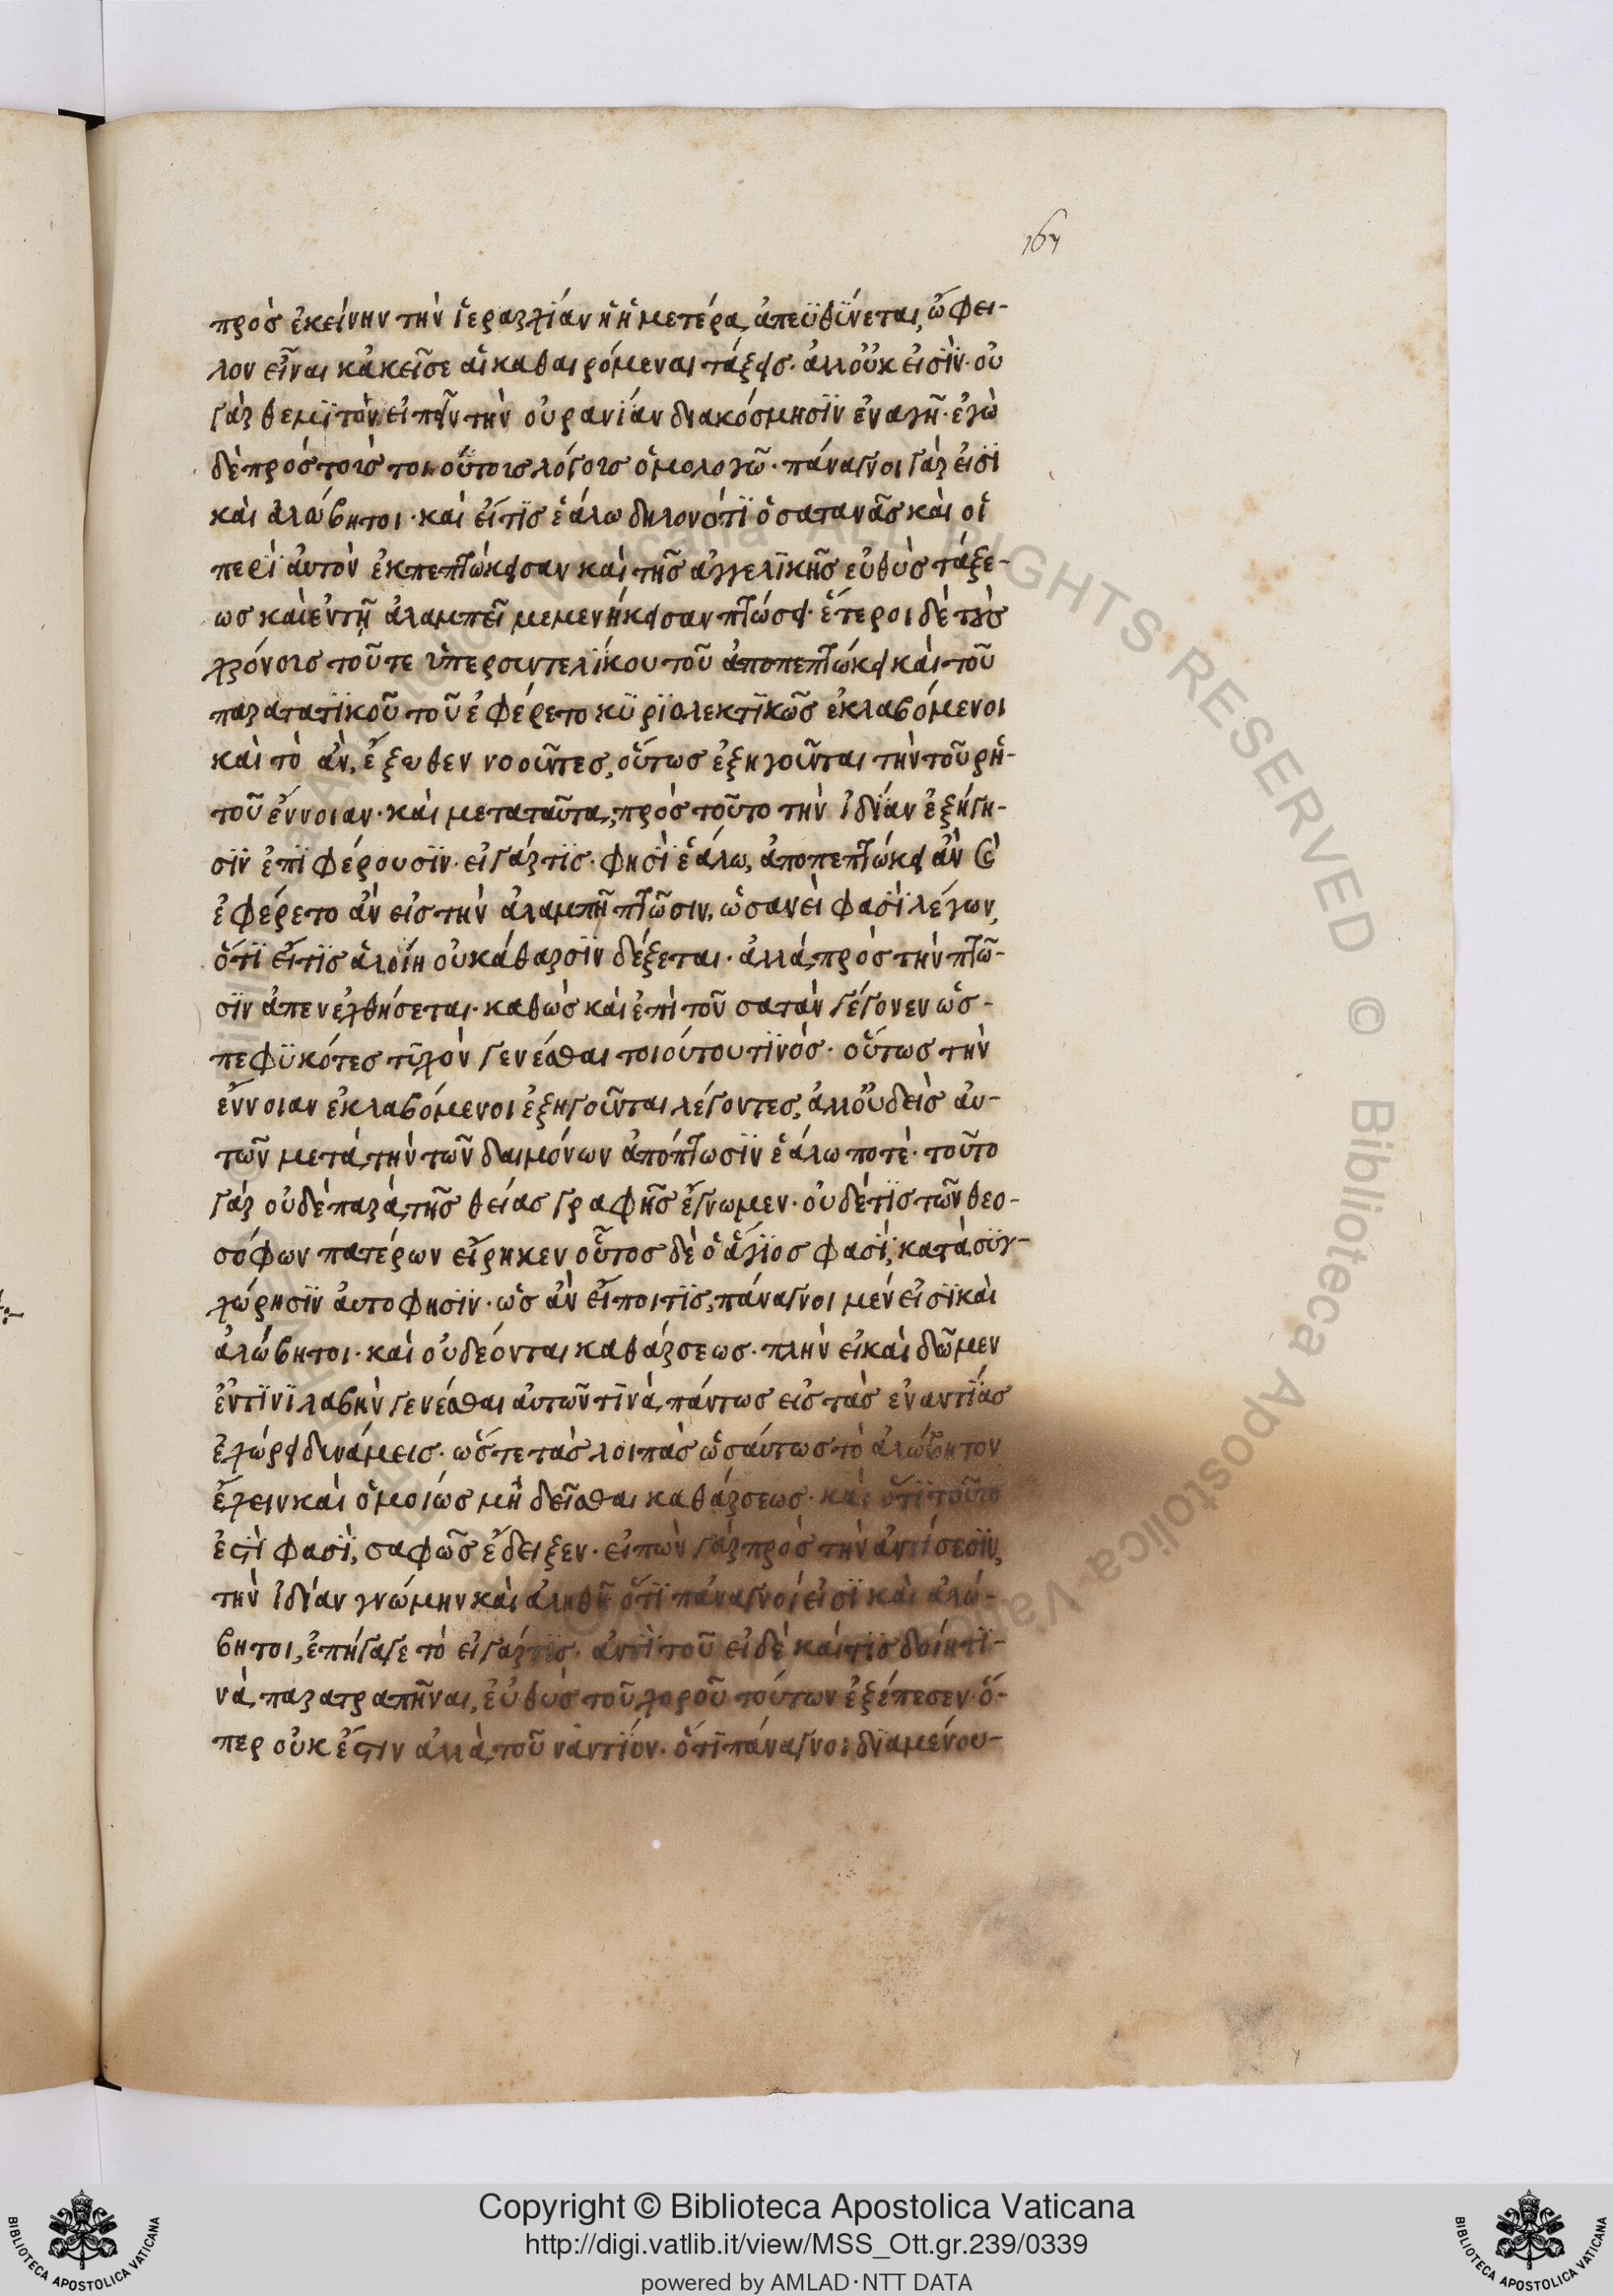 167
πρὸσ ἐκείνην τὴν ἱεραρχίαν ἡ ἡμετέρα, ἀπευθύνεται, ὤφει-
λον εἶναι κἀκεῖσε αἱ καθαιρόμεναι τάξεισ· ἀλλ' οὐκ εἰσϊν· οὐ
γὰρ θεμϊτὸν εἰπεῖν τὴν οὐρανίαν διακόσμησϊν ἐναγῆ· ἐγὼ
δὲ πρὸσ τοῖσ τοιούτοισ λόγοισ ὁμολογῶ· πάναγνοι γάρ εἰσϊ
καὶ ἀλώβητοι· καὶ εἴ τϊσ ἑάλω δηλονότϊ ὁ σατανᾶσ καὶ οἱ
περὶ αὐτὸν ἐκπεπτώκεισαν καὶ τῆσ ἀγγελϊκῆσ εὐθὺσ τάξε-
ωσ καὶ ἐν τῇ ἀλαμπεῖ μεμενήκεισαν πτώσει· ἕτεροι δὲ τοὺσ
χρόνοισ τοῦ τε ὑπερσυντελίκου τοῦ ἀποπεπτώκει καὶ τοῦ
παρατατϊκοῦ τοῦ ἐφέρετο κϋρϊολεκτϊκῶσ ἐκλαβόμενοι
καὶ τὸ ἀν, ἔξωθεν νοοῦντεσ, οὕτωσ ἐξηγοῦνται τὴν τοῦ ρη-
τοῦ ἔννοιαν· καὶ μεταταῦτα, πρὸσ τοῦτο τὴν ἰδίαν ἐξήγη-
σϊν ἐπϊφέρουσϊν· εἰ γάρ τϊσ· φησϊ ἑάλω, ἀποπεπτώκει ἂν καὶ
ἐφέρετο ἂν εἰσ τὴν ἀλαμπῆ πτῶσιν, ὡσανεὶ φασϊ λέγων,
ὅτϊ εἴ τϊσ ἁλοίη οὐ κάθαρσϊν δέξεται· ἀλλὰ πρὸσ τὴν πτῶ-
σϊν ἀπενεχθήσεται· καθὼσ καὶ ἐπὶ τοῦ σατὰν γέγονεν ὡσ-
πεφϋκότεσ τϋχὸν γενέσθαι τοιούτου τϊνόσ· οὕτωσ τὴν
ἔννοιαν ἐκλαβόμενοι ἐξηγοῦνται λέγοντεσ, ἀλλ' οὐδεὶσ αὐ-
τῶν μετὰ τὴν τῶν δαιμόνων ἀπόπτωσϊν ἑάλω ποτὲ· τοῦτο
γὰρ οὐδὲ παρὰ τῆσ θείασ γραφῆσ ἔγνωμεν· οὐδέ τϊσ τῶν θεο-
σόφων πατέρων εἴρηκεν οὗτοσ δὲ ὁ ἅγϊοσ φασϊ, κατὰ συγ-
χώρησϊν αὐτό φησϊν· ὡσ ἂν εἴποι τϊσ, πάναγνοι μέν εἰσϊ καὶ
ἀλώβητοι· καὶ οὐ δέονται καθάρσεωσ· πλὴν εἰ καὶ δῶμεν
ἐν τϊνϊ λαβὴν γενέσθαι αὐτῶν τϊνὰ, πάντωσ εἰσ τὰσ ἐναντίασ
ἐχώρει δυνάμεισ· ὥστε τὰσ λοιπὰσ ὡσαύτωσ τὸ ἀλώβητον
ἔχειν καὶ ὁμοίωσ μὴ δεῖσθαι καθάρσεωσ· καὶ ὅτϊ τοῦτο
ἐστὶ φασϊ, σαφῶσ ἔδειξεν· εἰπὼν γὰρ πρὸσ τὴν ἀντίσεσϊν,
τὴν ἰδίαν γνώμην καὶ ἀληθῆ ὅτϊ πάναγνοί εἰσϊ καὶ ἀλώ-
βητοι, ἐπήγαγε τὸ εἰ γάρ τϊσ· ἀντὶ τοῦ εἰ δὲ καί τϊσ δοίη τϊ-
νὰ, παρατραπῆναι, εὐθὺσ τοῦ χοροῦ τούτων ἐξέπεσεν· ὅ-
περ οὐκ ἔστιν ἀλλὰ τοῦναντίον· ὅτϊ πάναγνοι διαμένου-
Copyright © Biblioteca Apostolica Vaticana
http://digi.vatlib.it/view/MSS_Ott.gr.239/0339
powered by AMLAD·NTT DATA